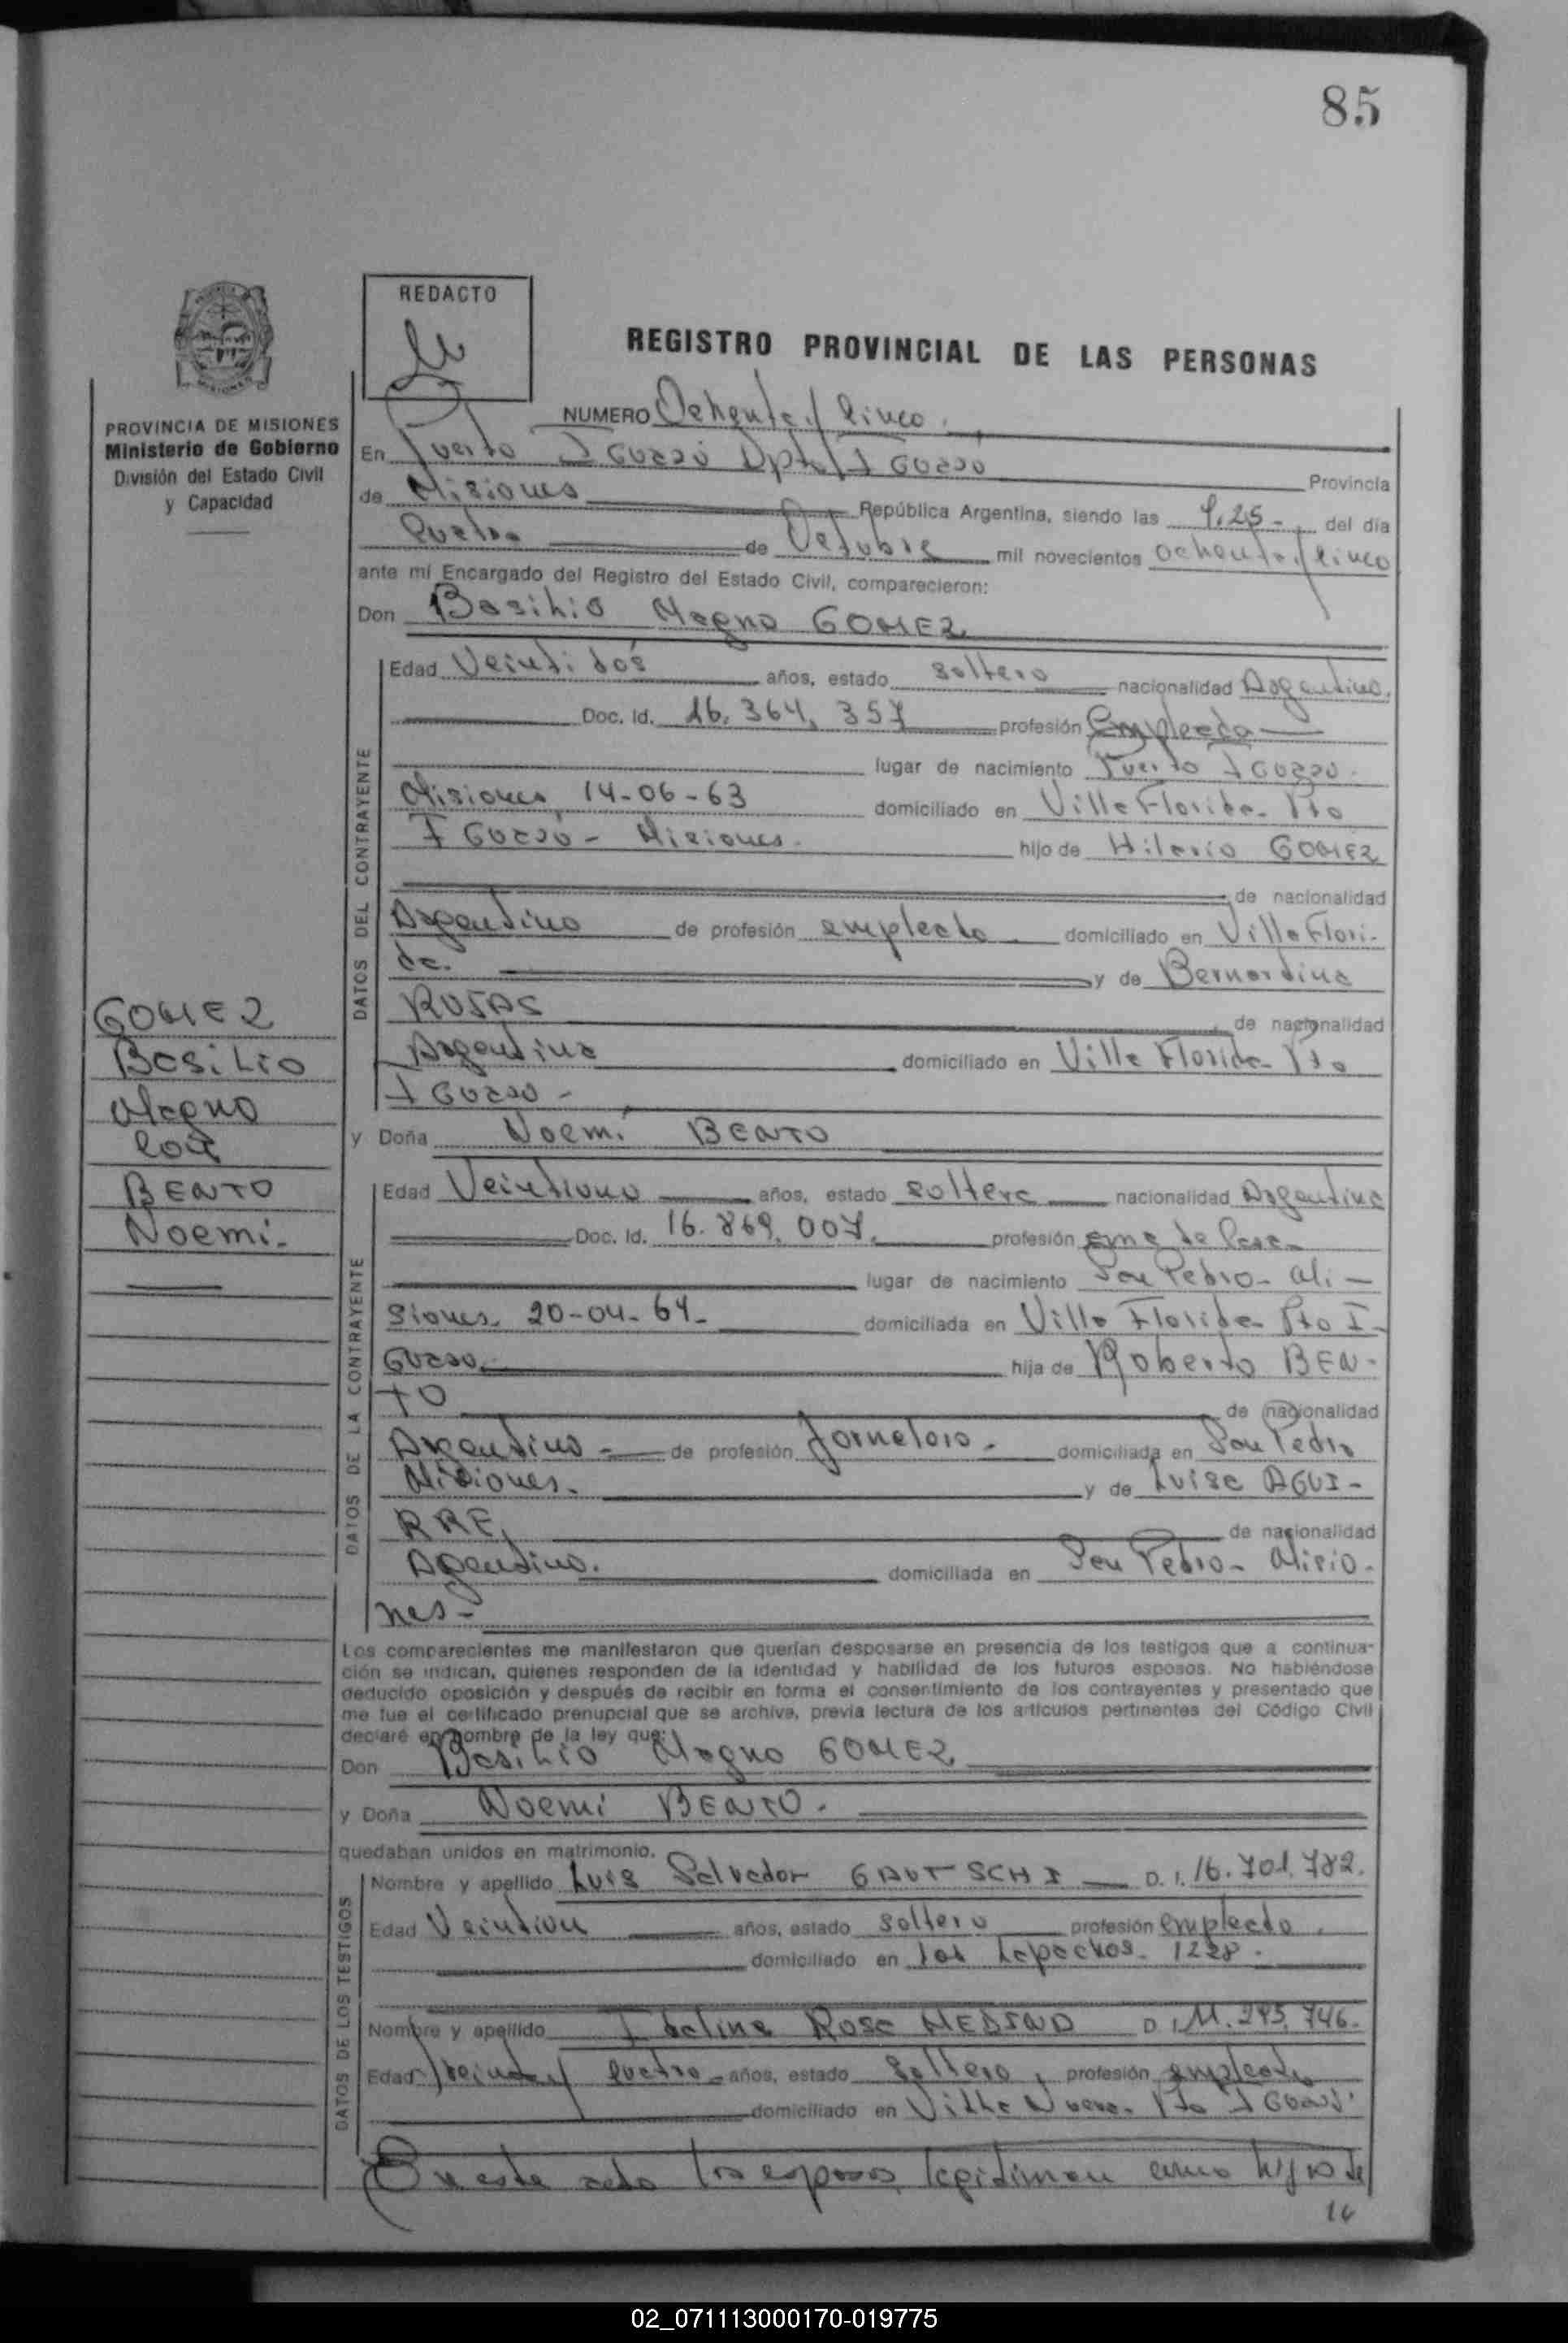 85
REDACTO
REGISTRO PROVINCIAL DE LAS PERSONAS
PROVINCIA DE MISIONES
Ministerio de Gobierno
División del Estado Civil
y Capacidad
NUMERO Ochenta y Cinco.
En Puerto IGUAZU Dpto IGUAZU
Provincia
de Misiones República Argentina, siendo las 9.25 - del día
Cuatro de Octubre mil novecientos ochenta y Cinco
ante mí Encargado del Registro del Estado Civil, comparecieron:
Don Basilio Magno GOMEZ
DATOS DEL CONTRAYENTE
Edad Veintidos años, estado soltero nacionalidad Argentino.
Doc. Id. 16.364.357 profesión Empleado
lugar de nacimiento Puerto IGUAZU.
Misiones 14-06-63 domiciliado en Villa Florida - Pto
IGUAZU - Misiones. hijo de Hilario GOMEZ
de nacionalidad
Argentino de profesión empleado domiciliado en Villa Flori-
da. y de Bernardina
ROJAS de nacionalidad
Argentina domiciliado en Villa Florida - Pto
IGUAZU -
GOMEZ
Basilio
Magno
con
BENTO
Noemi.
y Doña Noemi BENTO
DATOS DE LA CONTRAYENTE
Edad Veintiuno años, estado soltera nacionalidad Argentina
Doc. Id. 16.869.007. profesión ama de Casa
lugar de nacimiento San Pedro - Mi-
siones. 20-04-64- domiciliada en Villa Florida - Pto I-
GUAZU. hija de Roberto BEN-
TO de nacionalidad
Argentino - de profesión Jornalero. domiciliada en San Pedro
Misiones. y de Luisa AGUI-
RRE, de nacionalidad
Argentina. domiciliada en San Pedro - Misio-
nes-
Los comparecientes me manifestaron que querían desposarse en presencia de los testigos que a continua-
ción se indican, quienes responden de la identidad y habilidad de los futuros esposos. No habiéndose
deducido oposición y después de recibir en forma el consentimiento de los contrayentes y presentado que
me fue el certificado prenupcial que se archiva, previa lectura de los artículos pertinentes del Código Civil
declaré en nombre de la ley que:
Don Basilio Magno GOMEZ
y Doña Noemi BENTO.
quedaban unidos en matrimonio.
DATOS DE LOS TESTIGOS
Nombre y apellido Luis Salvador GAUTSCHI D. I. 16.701.782.
Edad Veintiun años, estado soltero profesión empleado.
domiciliado en Los Lapachos - 1228.
Nombre y apellido Rosa MEDINA D. I. 11.295.746.
Edad Treinta y cuatro años, estado soltera, profesión empleada
domiciliado en Villa Nueva - Pto IGUAZU.
En este acto los esposos legitiman como hijos de
14
02_071113000170-019775